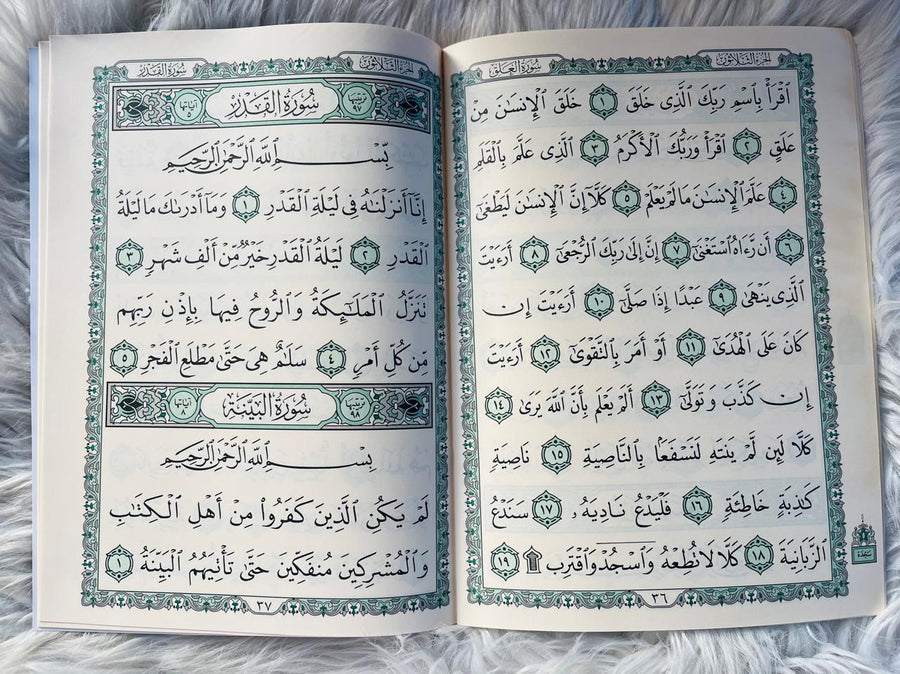 الجزء الثلاثون
سورة العلق
ٱقْرَأْ بِٱسْمِ رَبِّكَ ٱلَّذِى خَلَقَ ١ خَلَقَ ٱلْإِنسَٰنَ مِنْ
عَلَقٍ ٢ ٱقْرَأْ وَرَبُّكَ ٱلْأَكْرَمُ ٣ ٱلَّذِى عَلَّمَ بِٱلْقَلَمِ
٤ عَلَّمَ ٱلْإِنسَٰنَ مَا لَمْ يَعْلَمْ ٥ كَلَّآ إِنَّ ٱلْإِنسَٰنَ لَيَطْغَىٰٓ
٦ أَن رَّءَاهُ ٱسْتَغْنَىٰٓ ٧ إِنَّ إِلَىٰ رَبِّكَ ٱلرُّجْعَىٰٓ ٨ أَرَءَيْتَ
ٱلَّذِى يَنْهَىٰ ٩ عَبْدًا إِذَا صَلَّىٰٓ ١٠ أَرَءَيْتَ إِن
كَانَ عَلَى ٱلْهُدَىٰٓ ١١ أَوْ أَمَرَ بِٱلتَّقْوَىٰٓ ١٢ أَرَءَيْتَ
إِن كَذَّبَ وَتَوَلَّىٰٓ ١٣ أَلَمْ يَعْلَم بِأَنَّ ٱللَّهَ يَرَىٰ ١٤
كَلَّا لَئِن لَّمْ يَنتَهِ لَنَسْفَعًۢا بِٱلنَّاصِيَةِ ١٥ نَاصِيَةٍ
كَٰذِبَةٍ خَاطِئَةٍ ١٦ فَلْيَدْعُ نَادِيَهُۥ ١٧ سَنَدْعُ
ٱلزَّبَانِيَةَ ١٨ كَلَّا لَا تُطِعْهُ وَٱسْجُدْ وَٱقْتَرِب ۩ ١٩
سجدة
٣٦
الجزء الثلاثون
سورة القدر
ترتيبها ٩٧ سورة القدر آياتها ٥
بِسْمِ ٱللَّهِ ٱلرَّحْمَٰنِ ٱلرَّحِيمِ
إِنَّآ أَنزَلْنَٰهُ فِى لَيْلَةِ ٱلْقَدْرِ ١ وَمَآ أَدْرَىٰكَ مَا لَيْلَةُ
ٱلْقَدْرِ ٢ لَيْلَةُ ٱلْقَدْرِ خَيْرٌ مِّنْ أَلْفِ شَهْرٍ ٣
تَنَزَّلُ ٱلْمَلَٰٓئِكَةُ وَٱلرُّوحُ فِيهَا بِإِذْنِ رَبِّهِم
مِّن كُلِّ أَمْرٍ ٤ سَلَٰمٌ هِىَ حَتَّىٰ مَطْلَعِ ٱلْفَجْرِ ٥
ترتيبها ٩٨ سورة البينة آياتها ٨
بِسْمِ ٱللَّهِ ٱلرَّحْمَٰنِ ٱلرَّحِيمِ
لَمْ يَكُنِ ٱلَّذِينَ كَفَرُوا۟ مِنْ أَهْلِ ٱلْكِتَٰبِ
وَٱلْمُشْرِكِينَ مُنفَكِّينَ حَتَّىٰ تَأْتِيَهُمُ ٱلْبَيِّنَةُ ١
٣٧